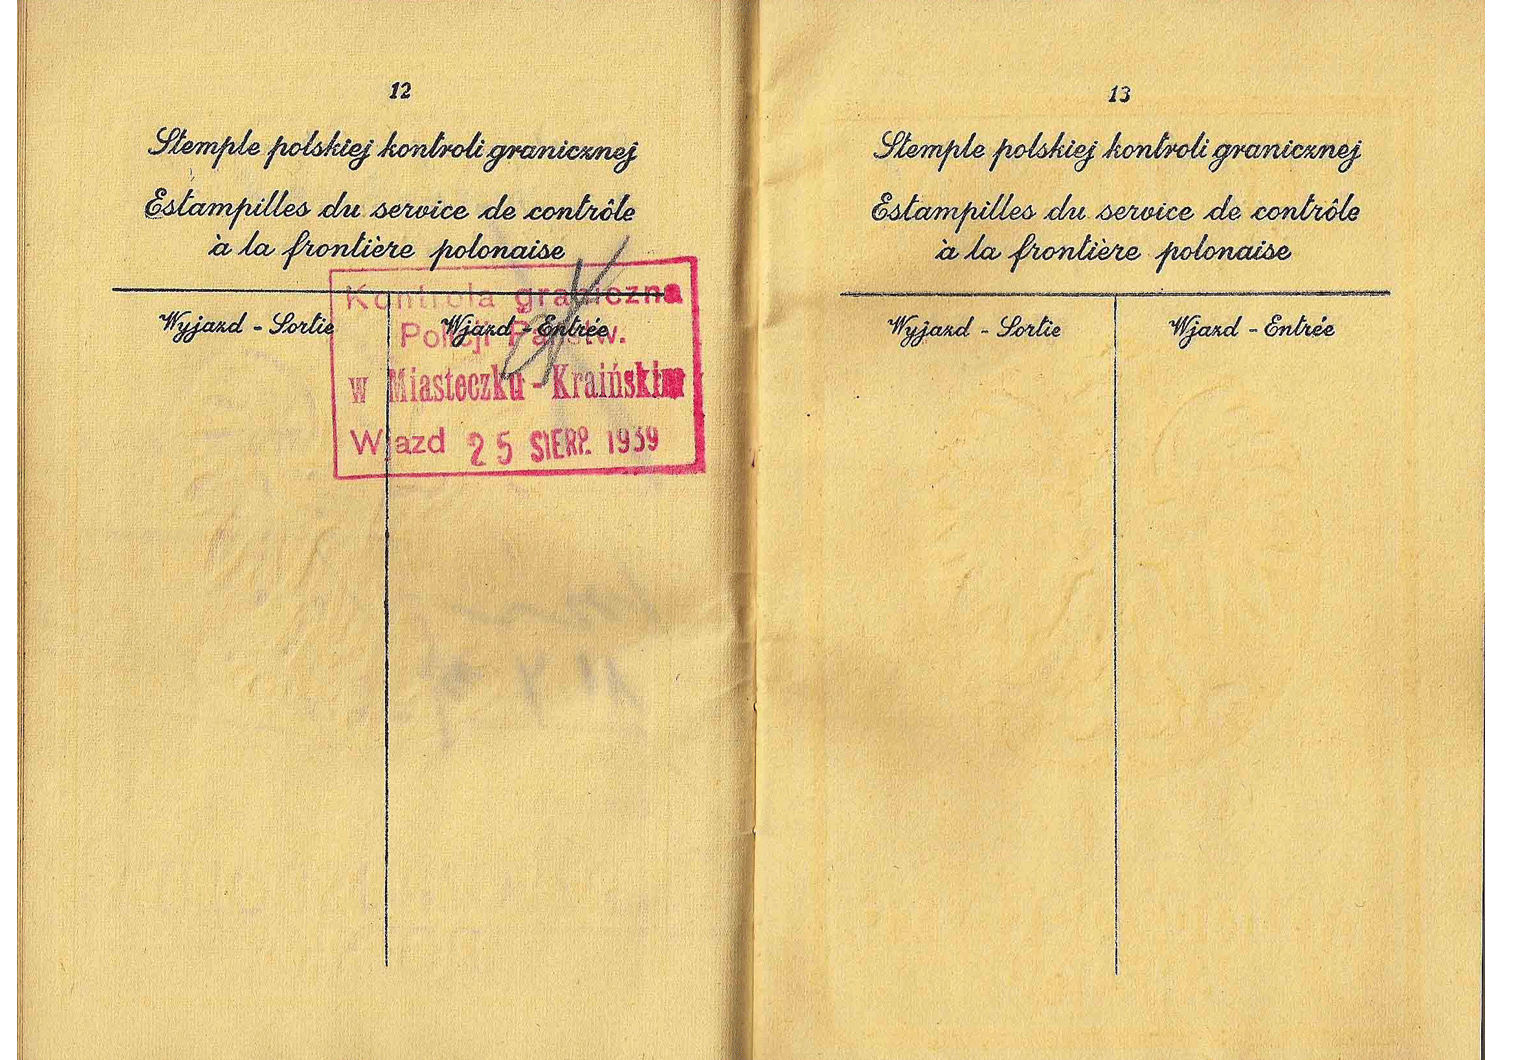 12
Stemple polskiej kontroli granicznej
Estampilles du service de contrôle
à la frontière polonaise
Wyjazd - Sortie
Wjazd - Entrée
Kontrola graniczna
Policji Państw.
w Miasteczku - Kraińskim
Wjazd 25 SIERP. 1939
13
Stemple polskiej kontroli granicznej
Estampilles du service de contrôle
à la frontière polonaise
Wyjazd - Sortie
Wjazd - Entrée